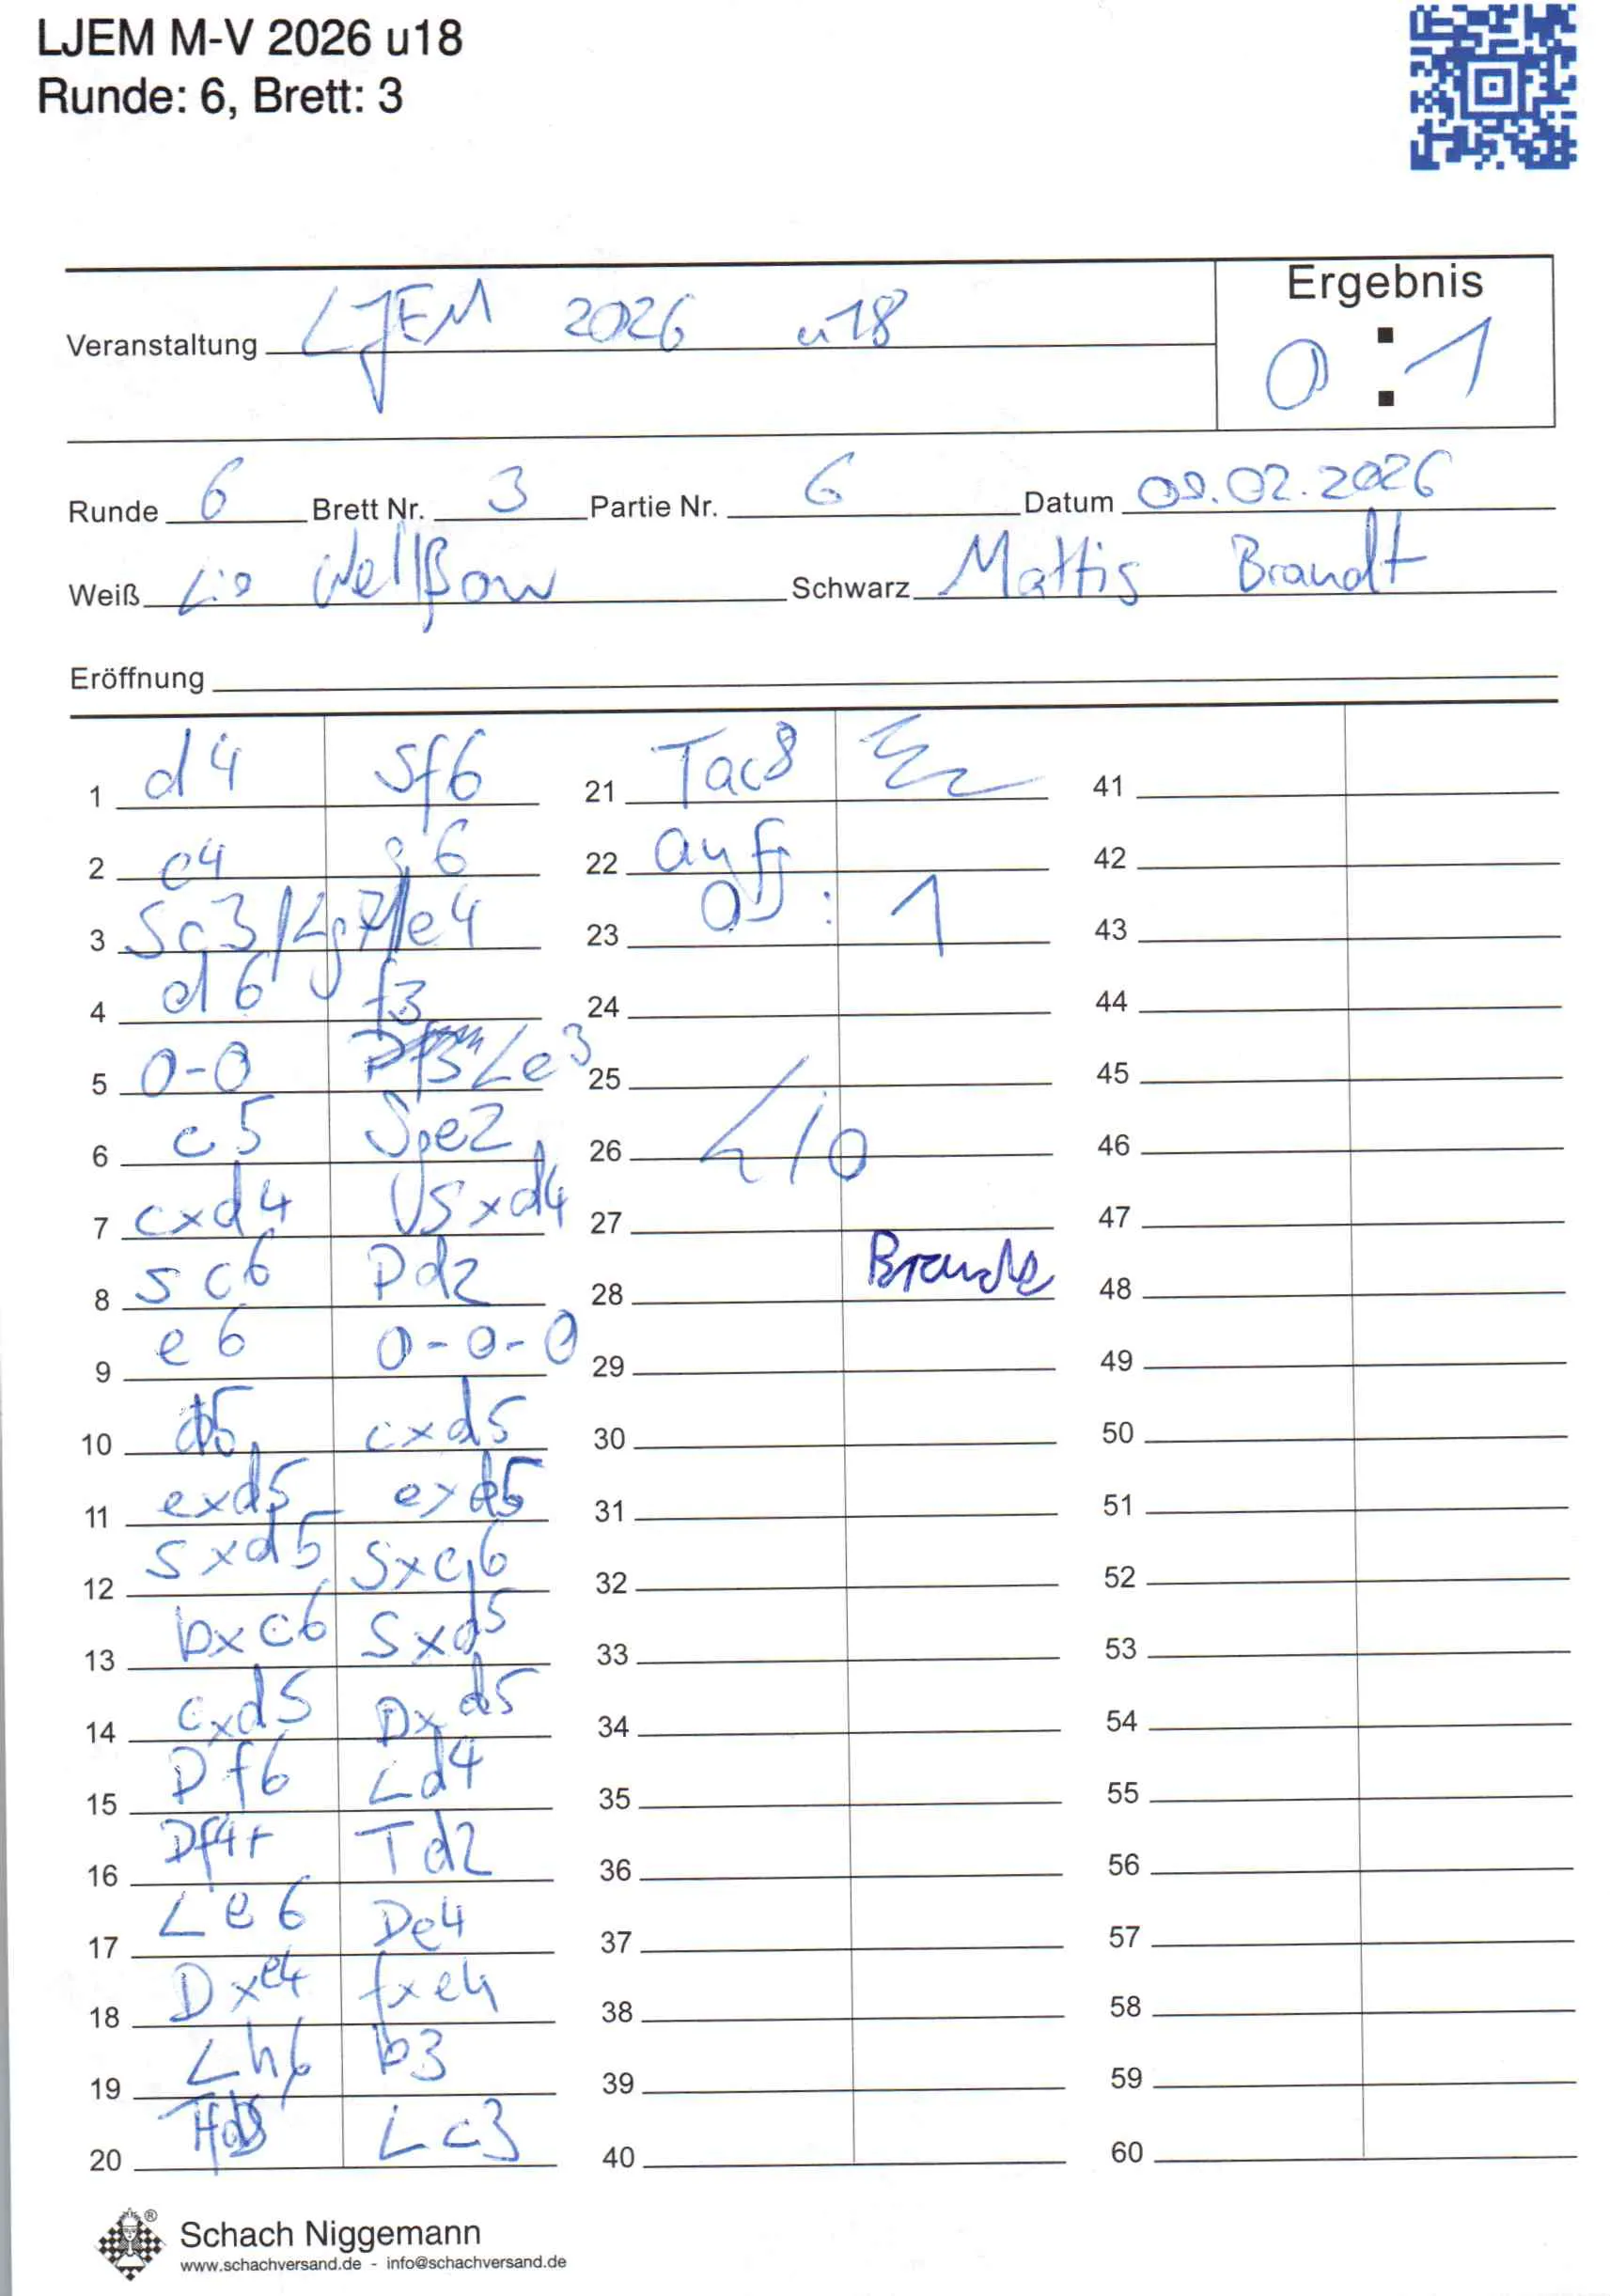 LJEM M-V 2026 u18
Runde: 6, Brett: 3
Ergebnis
Veranstaltung LJEM 2026 u18
0 : 1
Runde 6 Brett Nr. 3 Partie Nr. 6 Datum 09.02.2026
Weiß Lio Wellßow Schwarz Mattis Brandt
Eröffnung
1 d4 Sf6 21 Tac8 41
2 c4 g6 22 auf 42
3 Sc3/Lg7/e4 23 0 : 1 43
4 d6 f3 24 44
5 0-0 Le3 25 45
6 c5 Sge2 26 Lio 46
7 cxd4 Sxd4 27 47
8 Sc6 Dd2 28 Brandt 48
9 e6 0-0-0 29 49
10 d5 cxd5 30 50
11 exd5 exd5 31 51
12 Sxd5 Sxc6 32 52
13 bxc6 Sxd5 33 53
14 cxd5 Dxd5 34 54
15 Df6 Ld4 35 55
16 Df4+ Td2 36 56
17 Le6 De4 37 57
18 Dxe4 fxe4 38 58
19 Lh6 b3 39 59
20 Tfd8 Lc3 40 60
®
Schach Niggemann
www.schachversand.de - info@schachversand.de